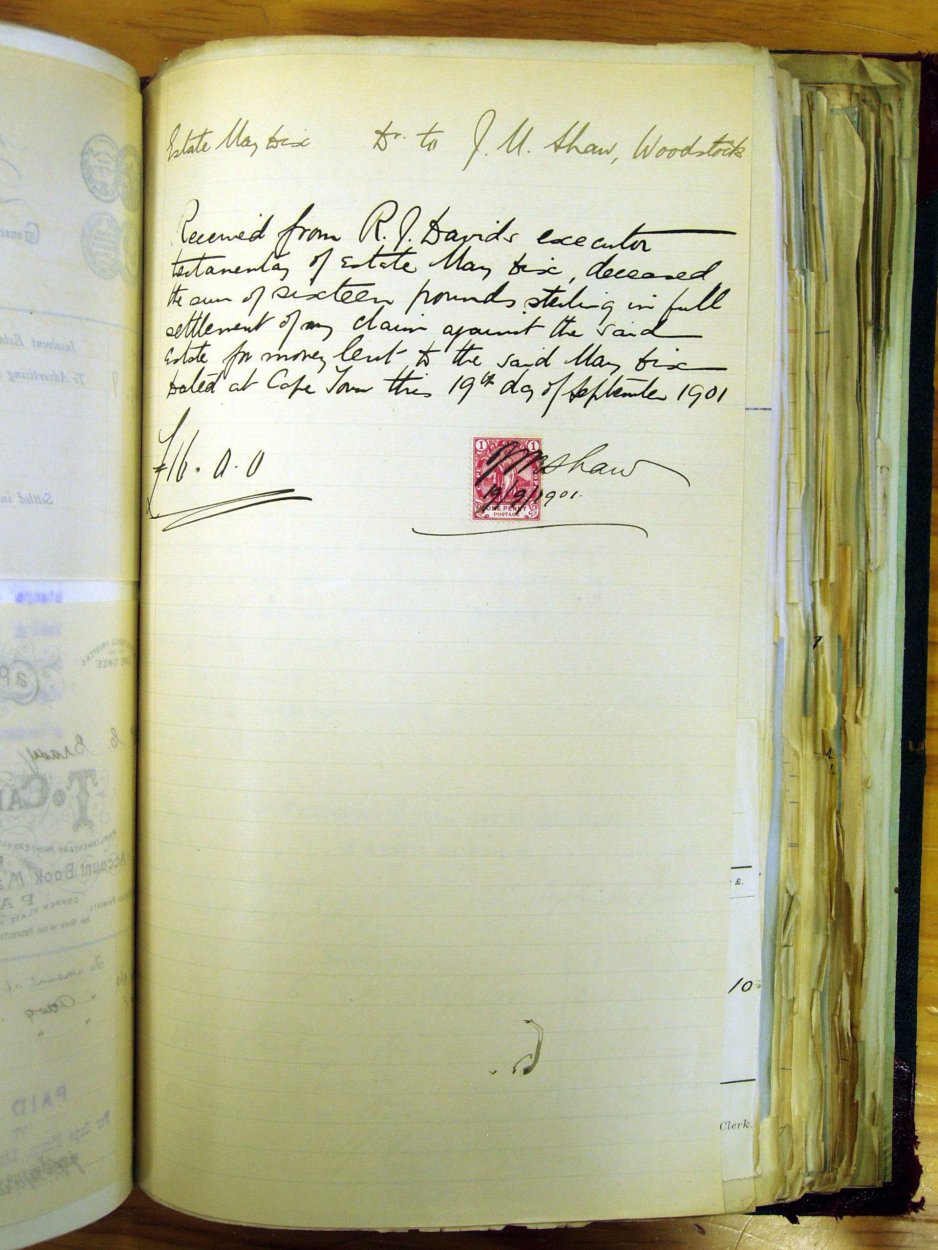 Estate May Dix Dr. to J. M. Shaw, Woodstock
Received from R. J. Davids executor
testamentary of Estate May Dix, deceased
the sum of sixteen pounds sterling in full
settlement of my claim against the said
Estate for money lent to the said May Dix
Dated at Cape Town this 19th day of September 1901
£16. 0. 0
1 1
JM Shaw
19/9/1901.
ONE PENNY
POSTAGE
£.
10
Clerk.
Insolvent Esta
To Advertising
Settled in
Stamps
Brady
To Ca
Account Book Ma
PAID